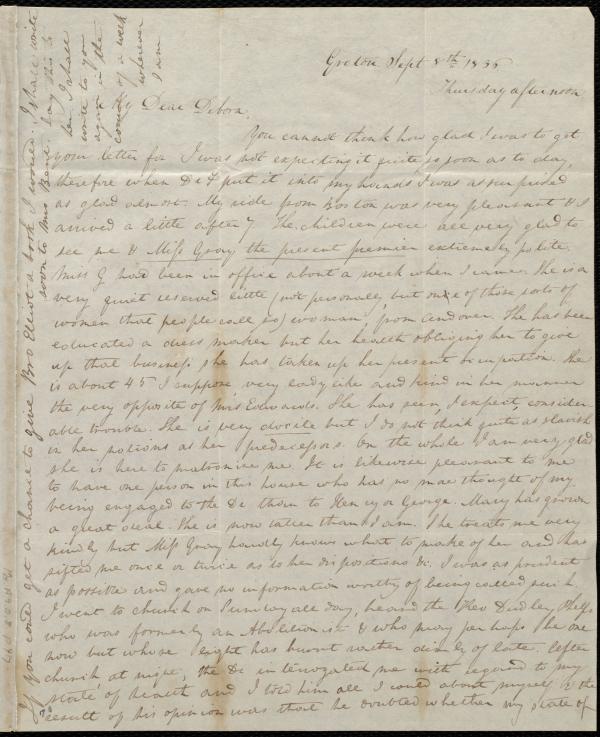 Groton Sept 8th 1836
Thursday afternoon
My Dear Debora,
You cannot think how glad I was to get
your letter for I was not expecting it quite so soon as to day,
therefore when Dr F put it into my hands I was as surprised
as glad almost. My ride from Boston was very pleasant & I
arrived a little after 7. The children were all very glad to
see me & Miss Gray, the present premier extremely polite.
Miss G had been in office about a week when I came. She is a
very quiet reserved little (not personally but one of those sorts of
women that people call so) woman, from Andover. She has been
educated a dress maker but her health obliging her to give
up that business she has taken up her present occupation. She
is about 45 I suppose very ladylike and kind in her manner
the very opposite of Mrs Edwards. She has seen, I expect, consider-
able trouble. She is very docile but I do not think quite as slavish
in her notions as her predecessors. On the whole I am very glad
she is here to matronize me. It is likewise pleasant to me
to have one person in this house who has no more thought of my
being engaged to the Dr than to Henry or George. Mary has grown
a great deal. She is now taller than I am. She treats me very
kindly but Miss Gray hardly knows what to make of her and has
sifted me once or twice as to her dispositions &c. I was as prudent
as possible and gave no information worthy of being called such.
I went to church on Sunday all day, heard the Theo Dudley Phelps
who was formerly an Abolitionist & who may perhaps be one
now but whose light has burnt rather dimly of late. After
church at night, the Dr interrogated me with regard to my
state of health and I told him all I could about myself & the
result of his opinion was that he doubted whether my state of
If you could get a chance to give Bro Elliot a book I would. I shall write
soon to Mrs Beard.
say this to
her. I shall
write to you
again in the
course of a week
wherever
I am